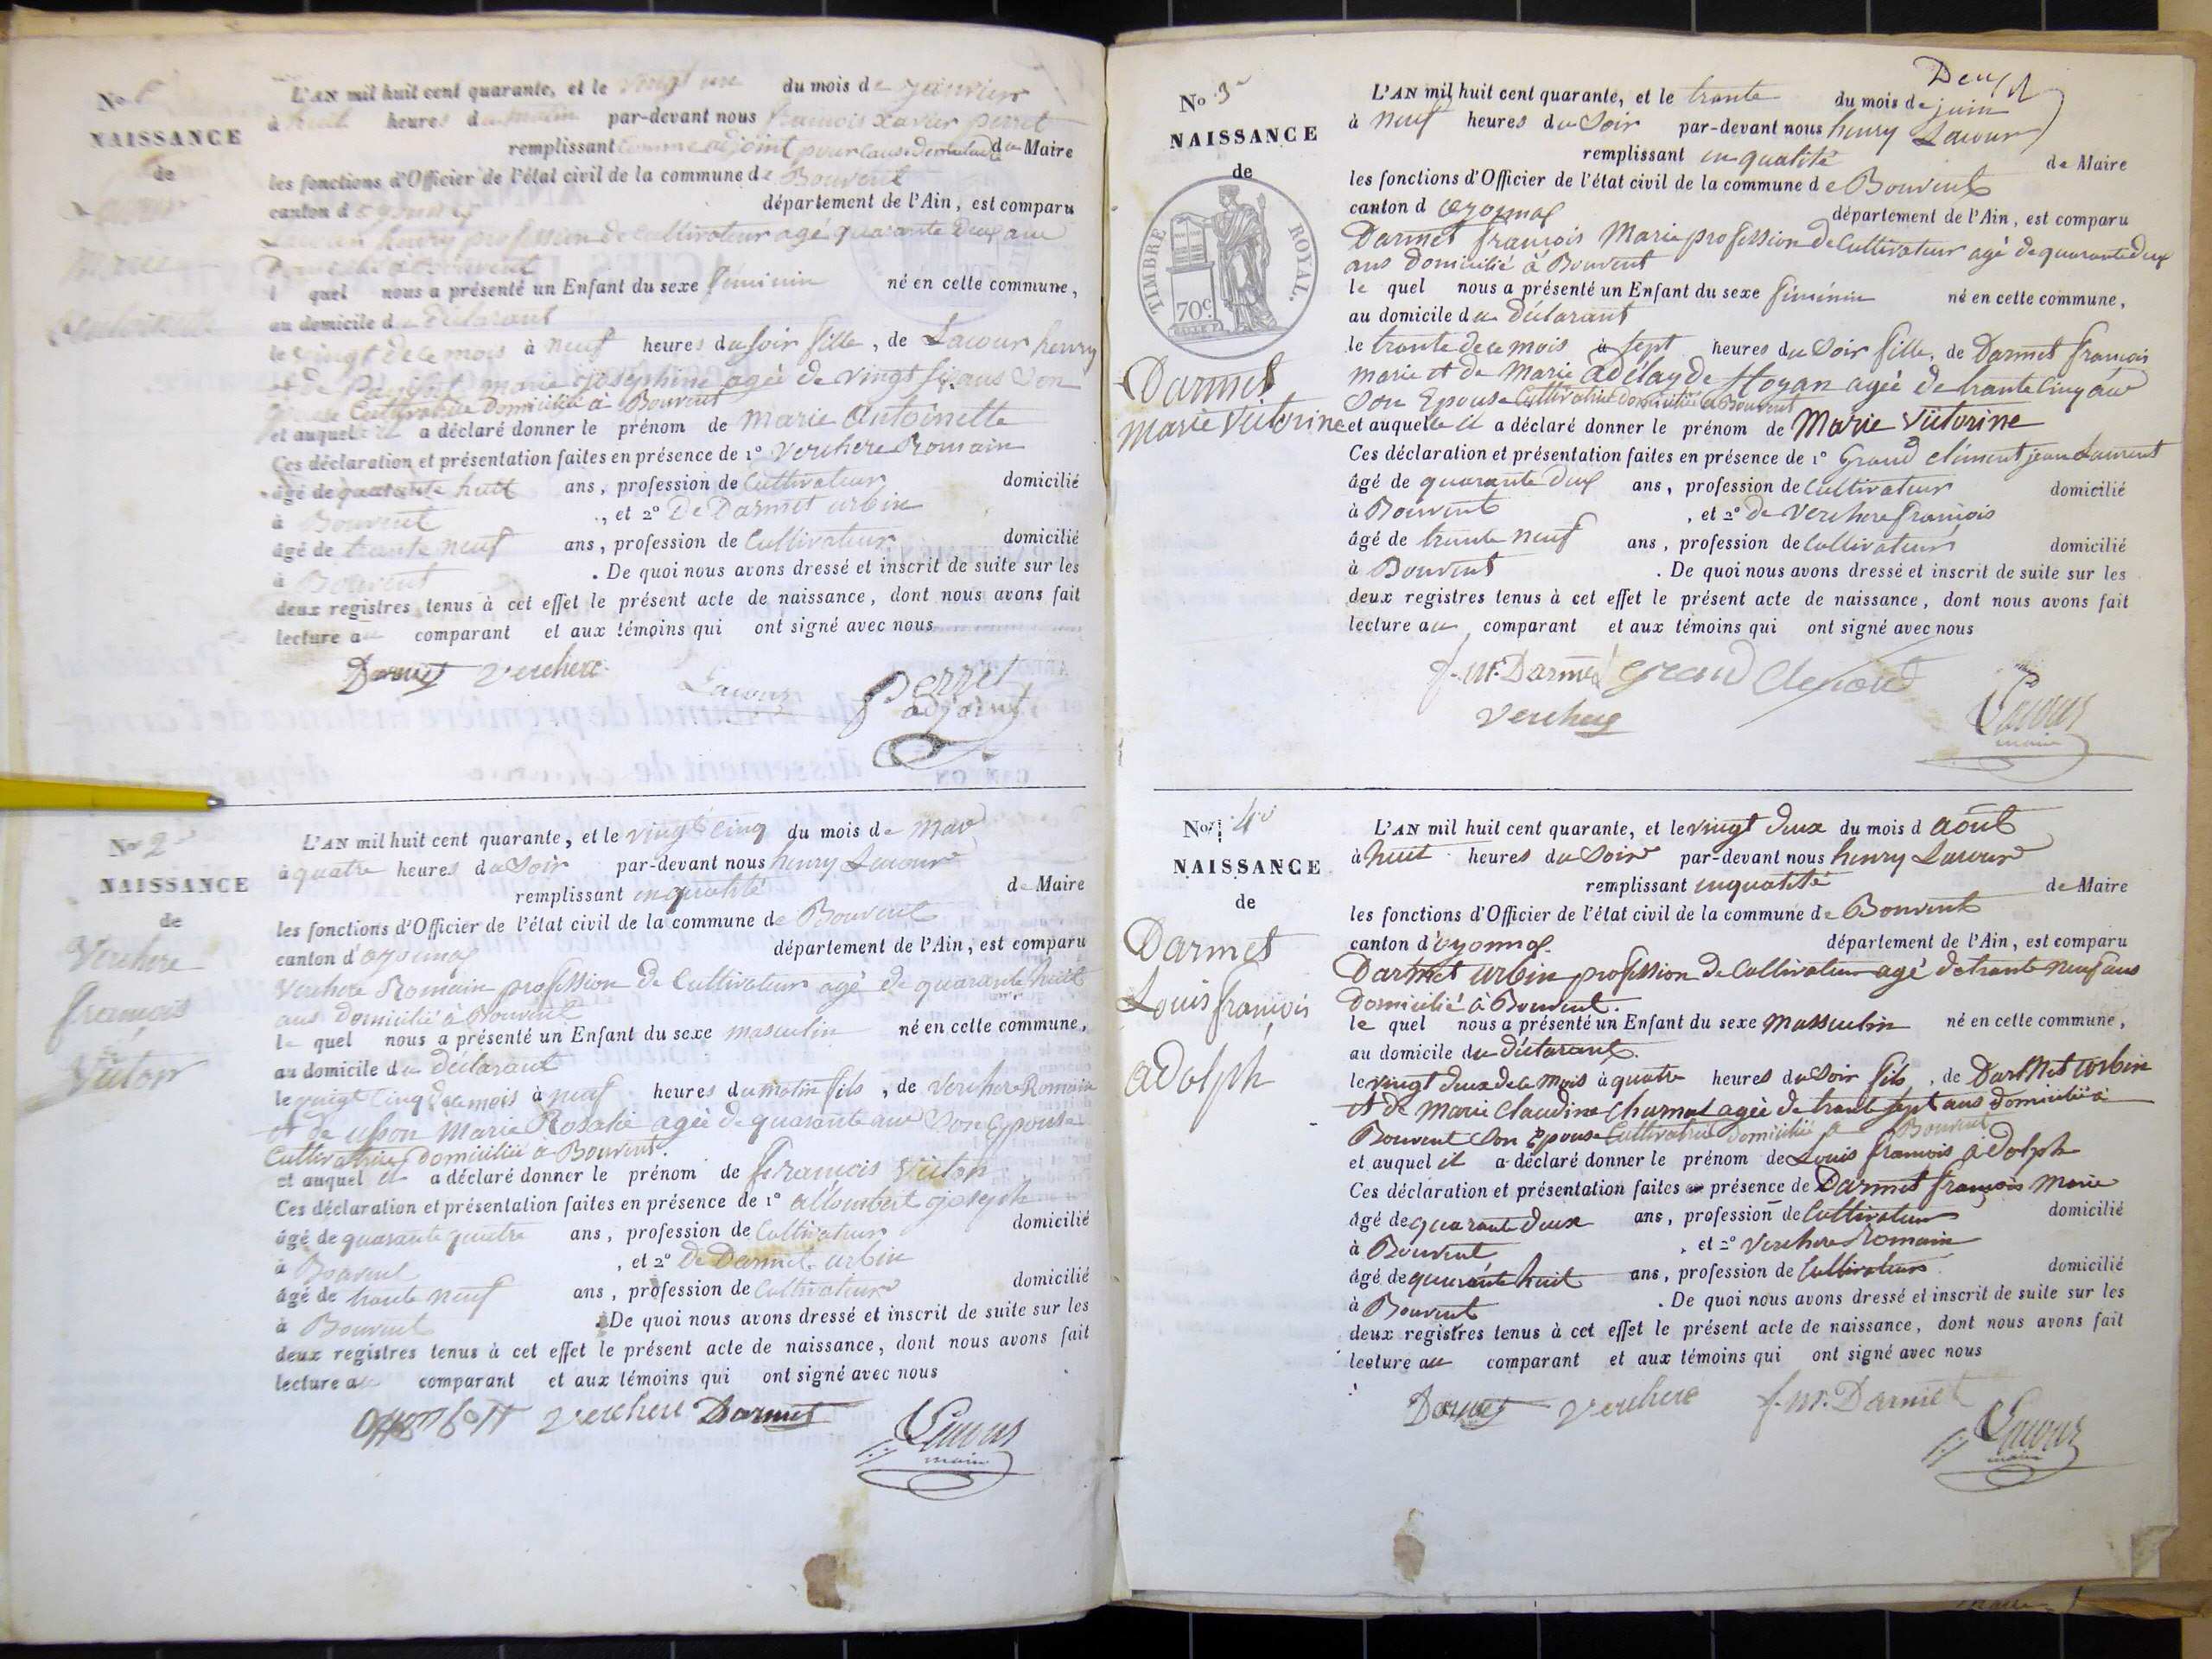 No
NAISSANCE
de
L'AN mil huit cent quarante, et le vingt un du mois de janvier
à huit heures du matin par-devant nous francois xavier perret
remplissant comme adjoint pour cause de maladie du Maire
les fonctions d'Officier de l'état civil de la commune de Bouvent
canton d'oyonnax département de l'Ain, est comparu
Lacour henry profession de Cultivateur agé quarante deux ans
Domicilié à Bouvent
l quel nous a présenté un Enfant du sexe féminin né en cette commune,
au domicile du déclarant
le vingt de ce mois à neuf heures du soir fille, de Lacour henry
et de marie josephine agée de vingt six ans Son
Epouse Cultivatrice Domiciliée à Bouvent
et auquel il a déclaré donner le prénom de Marie Antoinette
Ces déclaration et présentation faites en présence de 1° Verchere Romain
âgé de quarante huit ans, profession de Cultivateur domicilié
à Bouvent, et 2° De Darmet urbin
âgé de trante neuf ans, profession de Cultivateur domicilié
à Bouvent. De quoi nous avons dressé et inscrit de suite sur les
deux registres tenus à cet effet le présent acte de naissance, dont nous avons fait
lecture au comparant et aux témoins qui ont signé avec nous
Darmet Verchere
Lacour Perret
adjoint
No 2
NAISSANCE
de
Verchere
francois
Victor
L'AN mil huit cent quarante, et le vingt cinq du mois de
à quatre heures du Soir par-devant nous henry Lacour
remplissant en qualité de Maire
les fonctions d'Officier de l'état civil de la commune de Bouvent
canton d'oyonnax département de l'Ain, est comparu
Verchere Romain profession de Cultivateur agé de quarante huit
ans Domicilié à Bouvent
le quel nous a présenté un Enfant du sexe masculin né en cette commune,
au domicile du déclarant
le vingt cinq de ce mois à neuf heures du matin fils, de Verchere Romain
et de Marie Rosalie agée de quarante ans Son Epouse
Cultivatrice Domiciliée à Bouvent.
et auquel il a déclaré donner le prénom de francois Victor
Ces déclaration et présentation faites en présence de 1° allombert joseph
âgé de quarante quatre ans, profession de Cultivateur domicilié
à Bouvent, et 2° De Darmet urbin
âgé de trante neuf ans, profession de Cultivateur domicilié
à Bouvent. De quoi nous avons dressé et inscrit de suite sur les
deux registres tenus à cet effet le présent acte de naissance, dont nous avons fait
lecture au comparant et aux témoins qui ont signé avec nous
Verchere Darmet
Lacour
maire
Deux
No 3
NAISSANCE
de
TIMBRE ROYAL.
70c
Darmet
Marie Victorine
L'AN mil huit cent quarante, et le trante du mois de juin
à neuf heures du Soir par-devant nous henry Lacour
remplissant en qualité de Maire
les fonctions d'Officier de l'état civil de la commune de Bouvent
canton d oyonnax département de l'Ain, est comparu
Darmet francois Marie profession de Cultivateur agé de quarante deux
ans Domicilié à Bouvent
le quel nous a présenté un Enfant du sexe féminin né en cette commune,
au domicile du déclarant
le trante de ce mois à sept heures du Soir fille, de Darmet francois
marie et de Marie adélayde Hoyan agée de trante cinq ans
Son Epouse Cultivatrice domiciliée à Bouvent
et auquelle il a déclaré donner le prénom de Marie Victorine
Ces déclaration et présentation faites en présence de 1° Grand clément jean Laurent
âgé de quarante deux ans, profession de Cultivateur domicilié
à Bouvent, et 2° de Verchere francois
âgé de trante neuf ans, profession de Cultivateur domicilié
à Bouvent. De quoi nous avons dressé et inscrit de suite sur les
deux registres tenus à cet effet le présent acte de naissance, dont nous avons fait
lecture au comparant et aux témoins qui ont signé avec nous
f. m. Darmet Grand Clement
Verchere
Lacour
maire
No 4
NAISSANCE
de
Darmet
Louis francois
adolph
L'AN mil huit cent quarante, et le vingt deux du mois d août
à huit heures du Soir par-devant nous henry Lacour
remplissant en qualité de Maire
les fonctions d'Officier de l'état civil de la commune de Bouvent
canton d'oyonnax. département de l'Ain, est comparu
Darmet urbin profession de Cultivateur agé de trante neuf ans
domicilié à Bouvent.
le quel nous a présenté un Enfant du sexe Massculin né en cette commune,
au domicile du déclarant.
le vingt deux de ce mois à quatre heures du Soir fils, de Darmet urbin
et de marie claudine agée de trante sept ans domiciliée à
Bouvent Son Epouse Cultivatrice Domiciliée à Bouvent
et auquel il a déclaré donner le prénom de Louis francois adolph
Ces déclaration et présentation faites en présence de Darmet francois Marie
âgé de quarante deux ans, profession de Cultivateur domicilié
à Bouvent, et 2° Verchere Romain
âgé de quarante huit ans, profession de Cultivateur domicilié
à Bouvent. De quoi nous avons dressé et inscrit de suite sur les
deux registres tenus à cet effet le présent acte de naissance, dont nous avons fait
lecture au comparant et aux témoins qui ont signé avec nous
Darmet Verchere f. m. Darmet
Lacour
maire